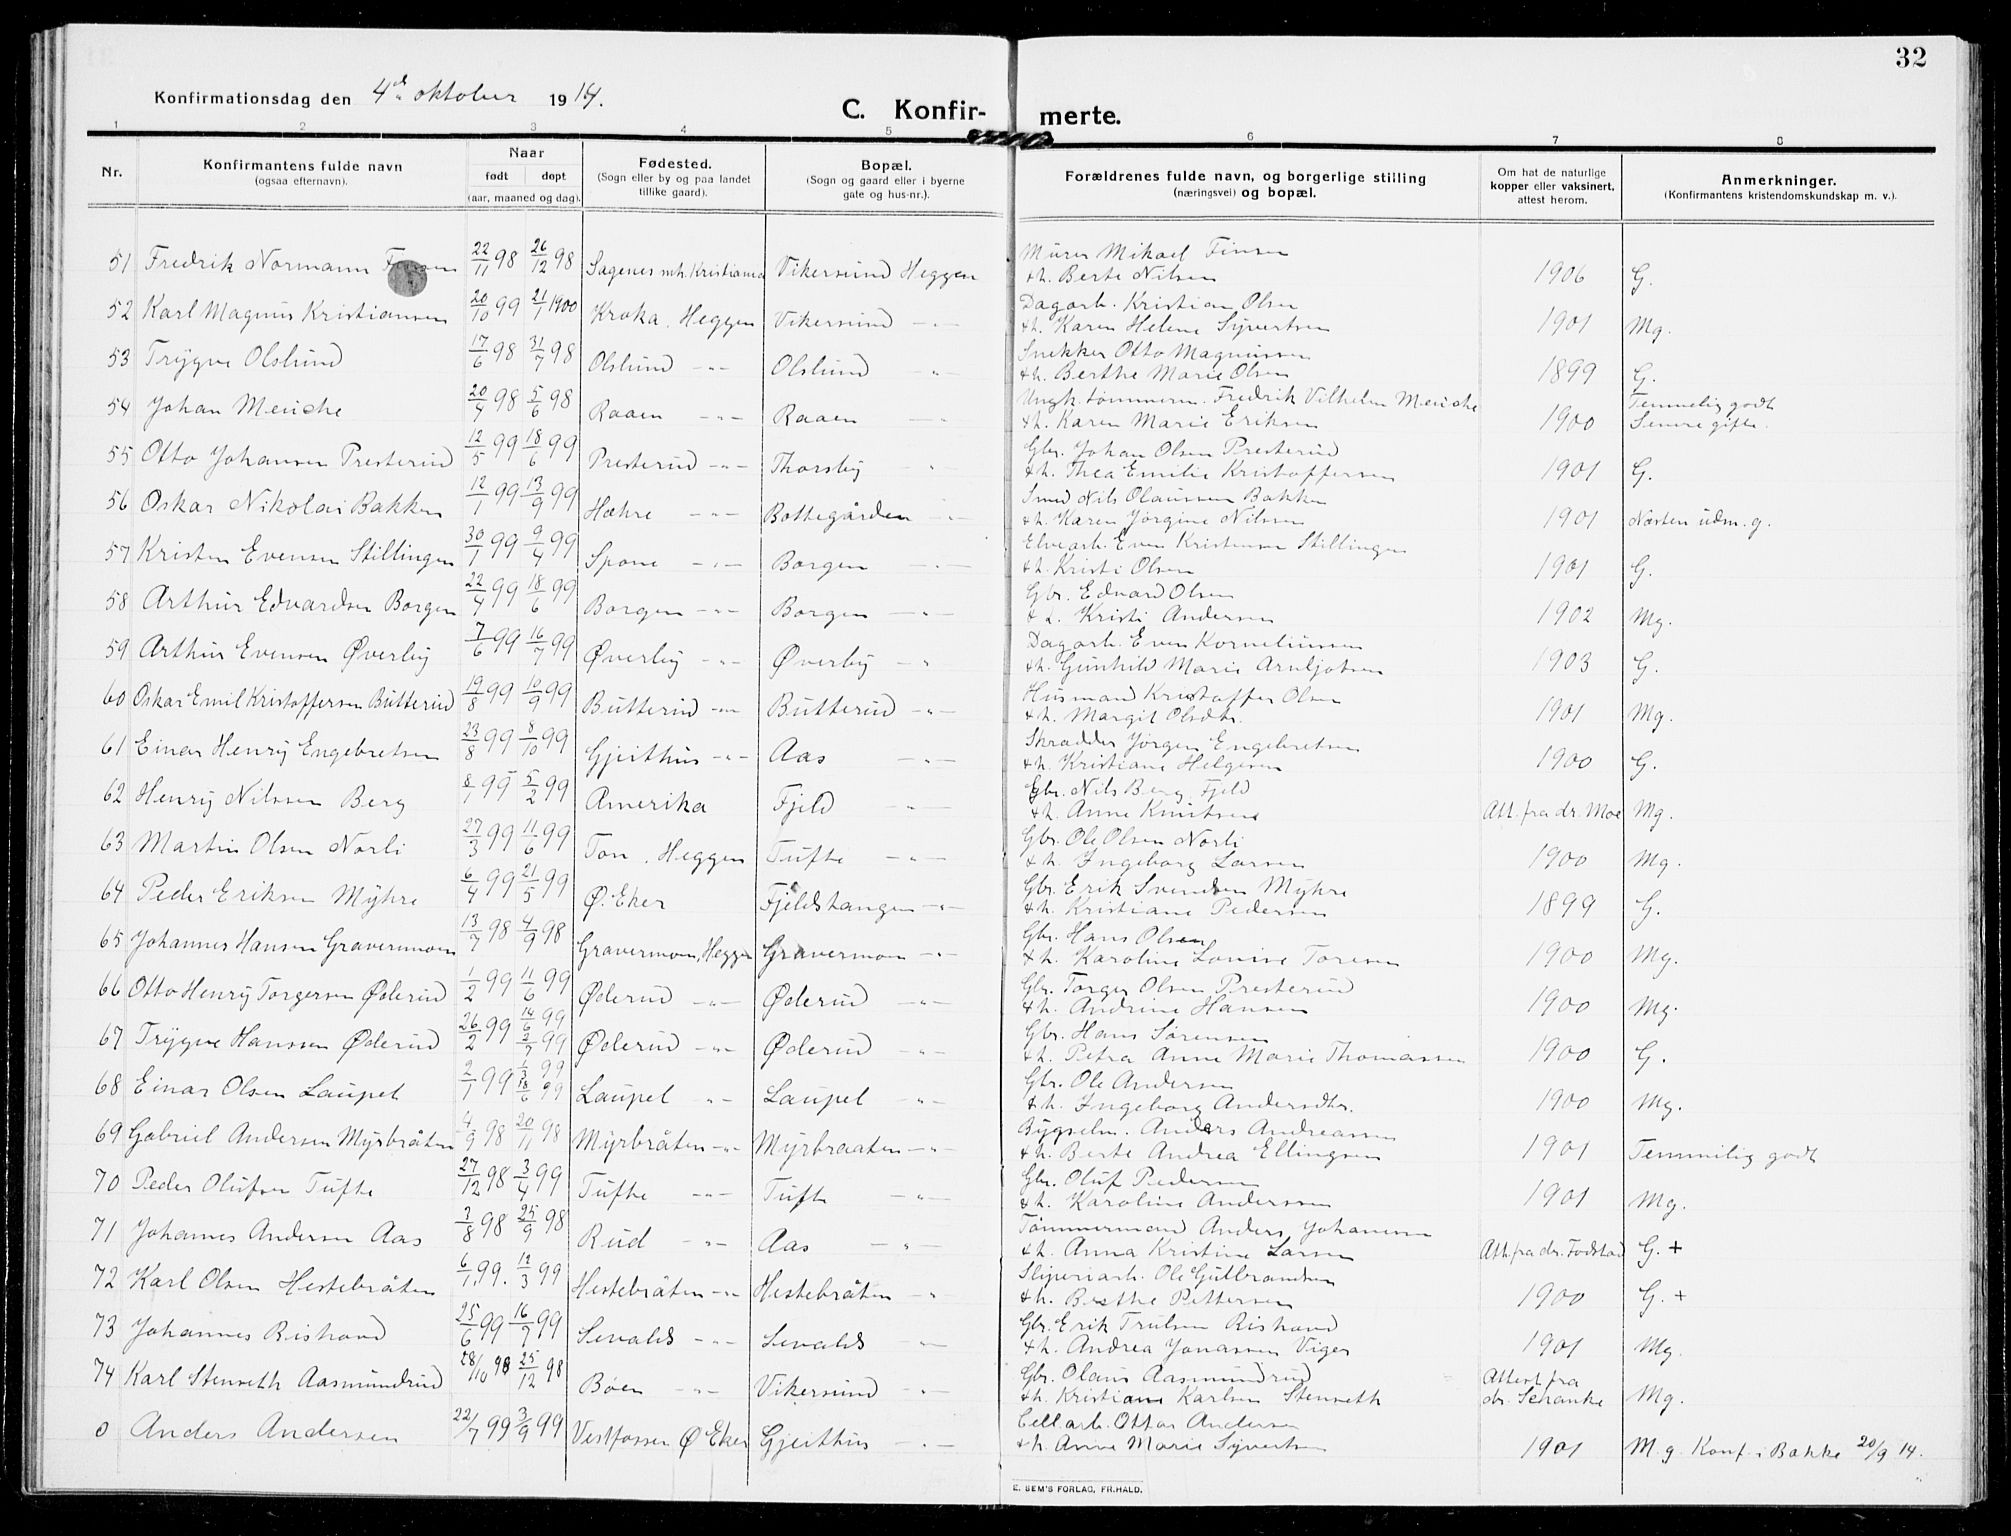 32
Konfirmationsdag den 4de oktober 1914.
C. Konfir- merte.
1 2 3 4 5 6 7 8
Nr. Konfirmantens fulde navn (ogsaa efternavn). Naar født døpt (aar, maaned og dag). Fødested. (Sogn eller by og paa landet tillike gaard). Bopæl. (Sogn og gaard eller i byerne gate og hus-nr.). Forældrenes fulde navn, og borgerlige stilling (næringsvei) og bopæl. Om hat de naturlige kopper eller vaksinert, attest herom. Anmerkninger. (Konfirmantens kristendomskundskap m. v.).
51 Fredrik Normann 22/11 98 26/12 98 Sagenes mh. Kristiania Vikersund Heggen Murer Mikael Finsen
+h. Berte Nilsen 1906 G.
52 Karl Magnus Kristiansen 20/10 99 21/1 1900 Kroka, Heggen Vikersund -"- Dagarb. Kristian Olsen
+h. Karen Helene Syvertsen 1901 Mg.
53 Trygve Olslund 17/6 98 31/7 98 Olslund -"- Olslund -"- Snekker Otto Magnussen
+h. Berthe Marie Olsen 1899 G.
54 Johan Meiche 20/4 98 5/6 98 Raaen -"- Raaen -"- Ungk. tømmerm. Fredrik Vilhelm Meiche Temmelig godt
+h. Karen Marie Eriksen 1900 Senere gifte.
55 Otto Johansen Presterud 12/5 99 18/6 99 Presterud -"- Thorsby -"- Gbr. Johan Olsen Presterud
+h. Thea Emilie Kristoffersen 1901 G.
56 Oskar Nikolai Bakken 12/1 99 13/9 99 Hæhre -"- Bottegården -"- Smed Nils Olaussen Bakken
+h. Karen Jørgine Nilssen 1901 Næsten udm. g.
57 Kristen Evensen Stillingen 30/1 99 9/4 99 Spone -"- Borgen -"- Elvearb. Even Kristensen Stillingen
+h. Kristi Olsen 1901 G.
58 Arthur Edvardsen Borgen 22/4 99 18/6 99 Borgen -"- Borgen -"- Gbr. Edvard Olsen
+h. Kristi Andersen 1902 Mg.
59 Arthur Evensen Øverby 7/6 99 16/7 99 Øverby -"- Øverby -"- Dagarb. Even Korneliussen
+h. Gunhild Marie Arnljotsen 1903 G.
60 Oskar Emil Kristoffersen Butterud 19/8 99 10/9 99 Butterud -"- Butterud -"- Husmand Kristoffer Olsen
+h. Margit Olsdtr. 1901 Mg.
61 Einar Henry Engebretsen 23/8 99 8/10 99 Gjeithus -"- Aas -"- Skrædder Jørgen Engebretsen
+h. Kristiane Helgesen 1900 G.
62 Henry Nilssen Berg 8/1 99 5/2 99 Amerika Fjeld -"- Gbr. Nils Berg, Fjeld
+h. Anne Knutsen Att. fra dr. Moe Mg.
63 Martin Olsen Norli 27/3 99 11/6 99 Ton, Heggen Tufte -"- Gbr. Ole Olsen Norli
+h. Ingeborg Larsen 1900 Mg.
64 Peder Eriksen Myhre 6/4 99 21/5 99 Ø. Eker Fjeldstangen -"- Gbr. Erik Svendsen Myhre
+h. Kristiane Pedersen 1899 G.
65 Johannes Hansen Gravermoen 13/7 98 4/9 98 Gravermoen, Heggen Gravermoen -"- Gbr. Hans Olsen
+h. Karoline Lovise Toresen 1900 Mg.
66 Otto Henry Torgersen Øderud 1/2 99 11/6 99 Øderud -"- Øderud -"- Gbr. Torger Olsen Presterud
+h. Andrine Hansen 1900 Mg.
67 Trygve Hanssen Øderud 26/2 99 14/6 99 2/7 99 Øderud -"- Øderud -"- Gbr. Hans Sørensen
+h. Petra Anne Marie Thomassen 1900 G.
68 Einar Olsen Laupet 2/1 99 1/3 99 18/6 99 Laupet -"- Laupet -"- Gbr. Ole Andersen
+h. Ingeborg Andersdtr. 1900 Mg.
69 Gabriel Andersen Myrbråten 4/9 98 20/11 98 Myrbråten -"- Myrbraaten -"- Bygselm. Anders Andreassen
+h. Berte Andrea Ellingsen 1901 Temmelig godt
70 Peder Olufsen Tufte 27/12 98 3/4 99 Tufte -"- Tufte -"- Gbr. Oluf Pedersen
+h. Karoline Anderssen 1901 Mg.
71 Johannes Andersen Aas 3/8 98 25/9 98 Rud -"- Aas -"- Tømmermand Anders Johansen
+h. Anna Kristine Larsen Att. fra dr. Fodstad G. +
72 Karl Olsen Hestebråten 6/1 99. 12/3 99 Hestebråten -"- Hestebråten -"- Sliperiarb. Ole Gulbrandsen
+h. Berthe Pettersen 1900 G. +
73 Johannes Ristvand 25/6 99 16/7 99 Sevalds -"- Sevalds -"- Gbr. Erik Trulsen Ristvand
+h. Andrea Jonassen Viger 1901 Mg.
74 Karl Stenseth Aasmundrud 28/10 98 25/12 98 Bøen -"- Vikersund -"- Gbr. Olaus Aasmundrud Attest fra
+h. Kristiane Karlsen Stenseth dr. Schanke Mg.
0 Anders Andersen 22/7 99 3/9 99 Vestfossen Ø. Eker Gjeithus -"- Cell.arb. Ottar Andersen
+h. Anne Marie Syvertsen 1901 M. g. Konf. i Bakke 20/9 14.
E. SEM'S FORLAG, FR.HALD.